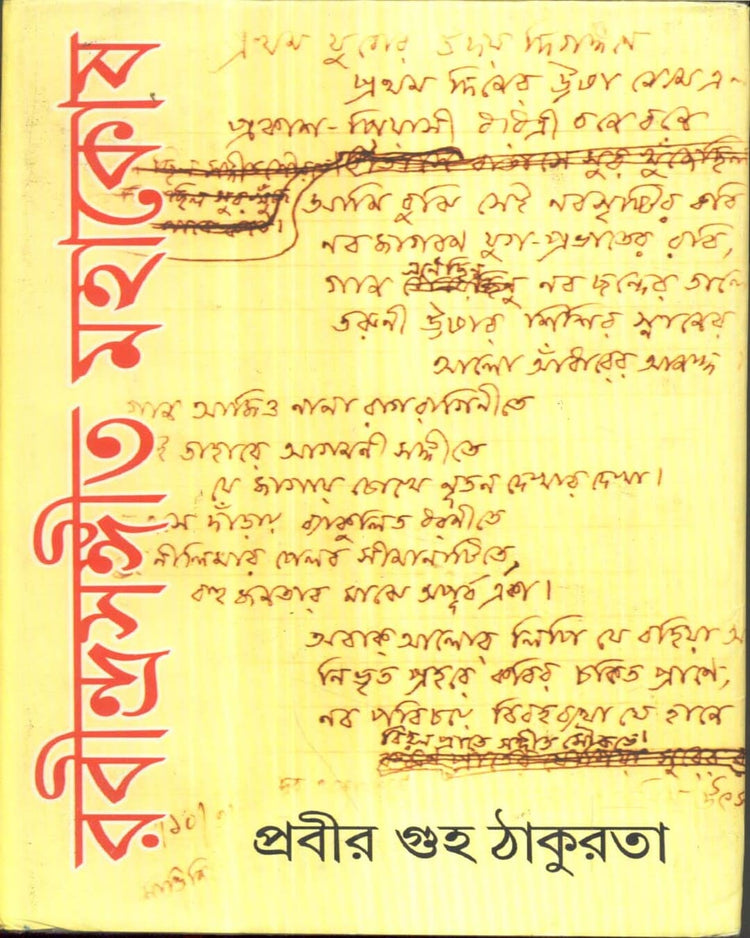 রবীন্দ্রসঙ্গীত মহাকোষ
প্রথম যুগের উদয় দিগঙ্গনে
প্রথম দিনের উষা নেমে এল
প্রকাশ-পিয়াসী ধরিত্রী বনে বনে
আমি বুঝি সেই নবসৃষ্টির কবি
নব জাগরণ যুগ-প্রভাতের রবি,
গান এনেছিনু নব ছন্দের তালে
তরুণী উষার শিশির স্নানের
আলো আঁধারের আনন্দ
গান আজিও নানা রাগরাগিনীতে
ই তাহারে আগমনী সঙ্গীতে
যে জাগায় চোখে নূতন দেখার দেখা।
দাঁড়ায় ব্যাকুলিত ধরণীতে
নীলিমার পেলব সীমানাটিতে,
বহু জনতার মাঝে অপূর্ব একা।
অবাক্ আলোর লিপি যে বহিয়া
নিভৃত প্রহরে কবির চকিত প্রাণে,
নব পরিচয়ে বিরহব্যথা যে হানে
বিহ্বল প্রাতে সঙ্গীত সৌরভে।
প্রবীর গুহ ঠাকুরতা